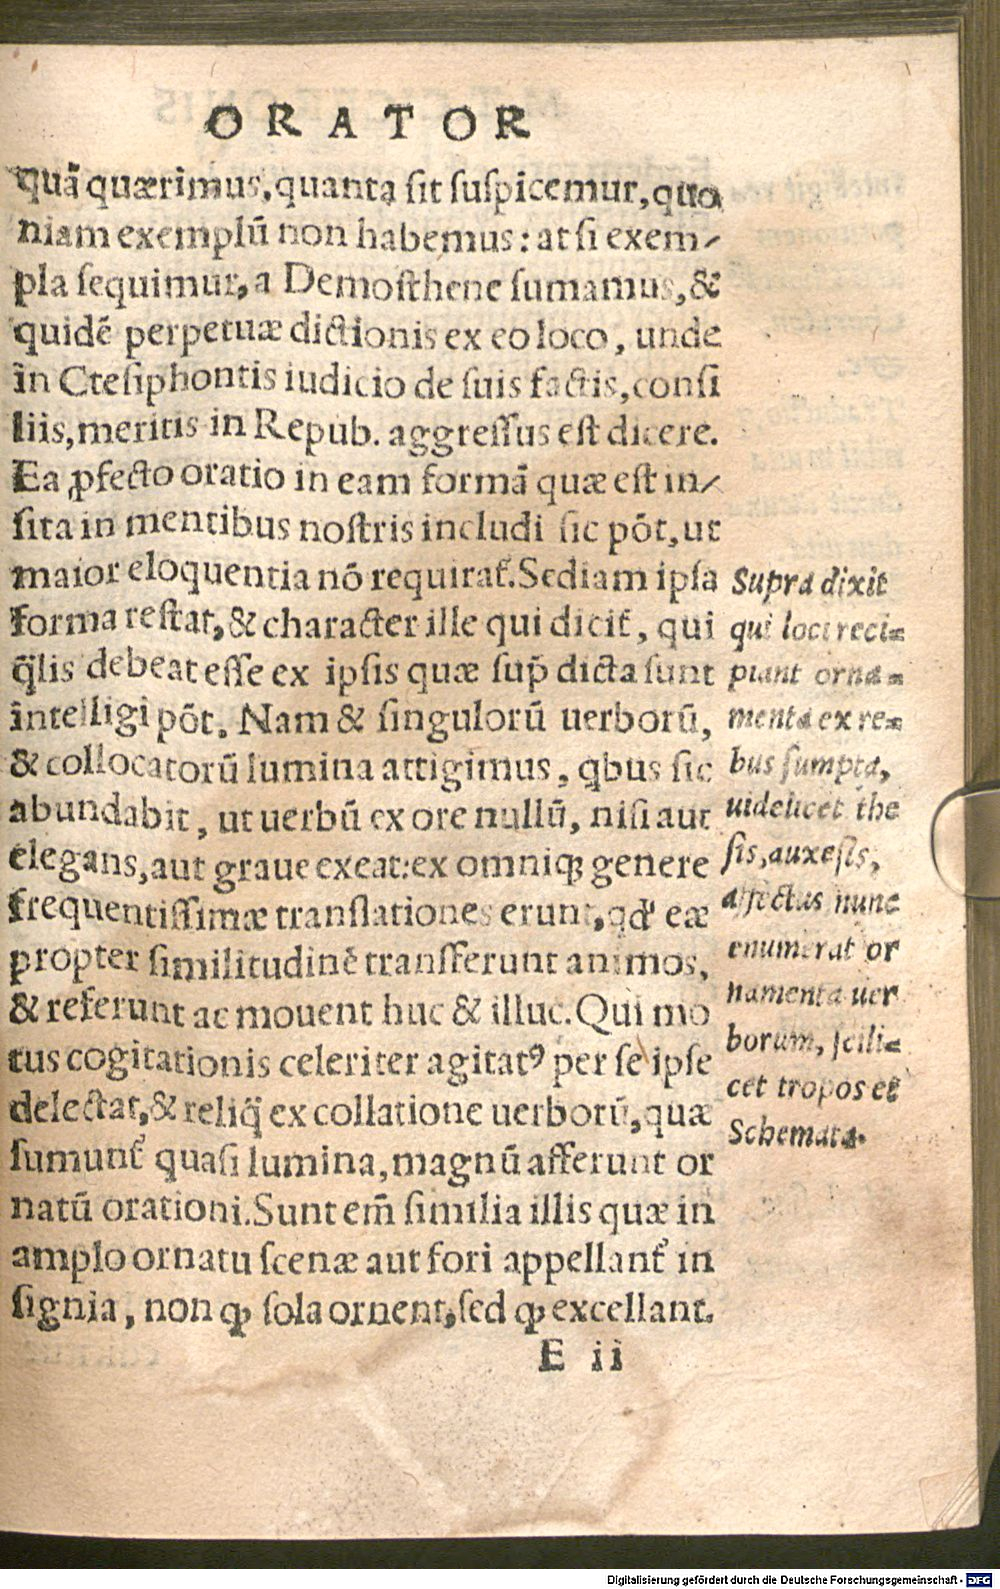 ORATOR
quã quærimus, quanta sit suspicemur, quo
niam exemplũ non habemus: at si exem-
pla sequimur, a Demosthene sumamus, &
quidẽ perpetuæ dictionis ex eo loco, unde
in Ctesiphontis iudicio de suis factis, consi
liis, meritis in Repub. aggressus est dicere.
Ea ꝓfecto oratio in eam formã quæ est in-
sita in mentibus nostris includi sic põt, ut
maior eloquentia nõ requirat᷑. Sed iam ipsa
forma restat, & character ille qui dicit᷑, qui
q̃lis debeat esse ex ipsis quæ sup̃ dicta sunt
intelligi põt. Nam & singulorũ uerborũ,
& collocatorũ lumina attigimus, q̃bus sic
abundabit, ut uerbũ ex ore nullũ, nisi aut
elegans, aut graue exeat: ex omniq; genere
frequentissimæ translationes erunt, qđ eæ
propter similitudinẽ transferunt animos,
& referunt ac mouent huc & illuc. Qui mo
tus cogitationis celeriter agitatꝰ per se ipse
delectat, & reliq̃ ex collatione uerborũ, quæ
sumunt᷑ quasi lumina, magnũ afferunt or
natũ orationi. Sunt em̃ similia illis quæ in
amplo ornatu scenæ aut fori appellant᷑ in
signia, non ꝙ sola ornent, sed ꝙ excellant.
E ii
Supra dixit
qui loci reci-
piant orna-
menta ex re-
bus sumpta,
uidelicet the
sis, auxesis,
affectus nunc
enumerat or
namenta uer
borum, scili-
cet tropos et
Schemata.
Digitalisierung gefördert durch die Deutsche Forschungsgemeinschaft - DFG